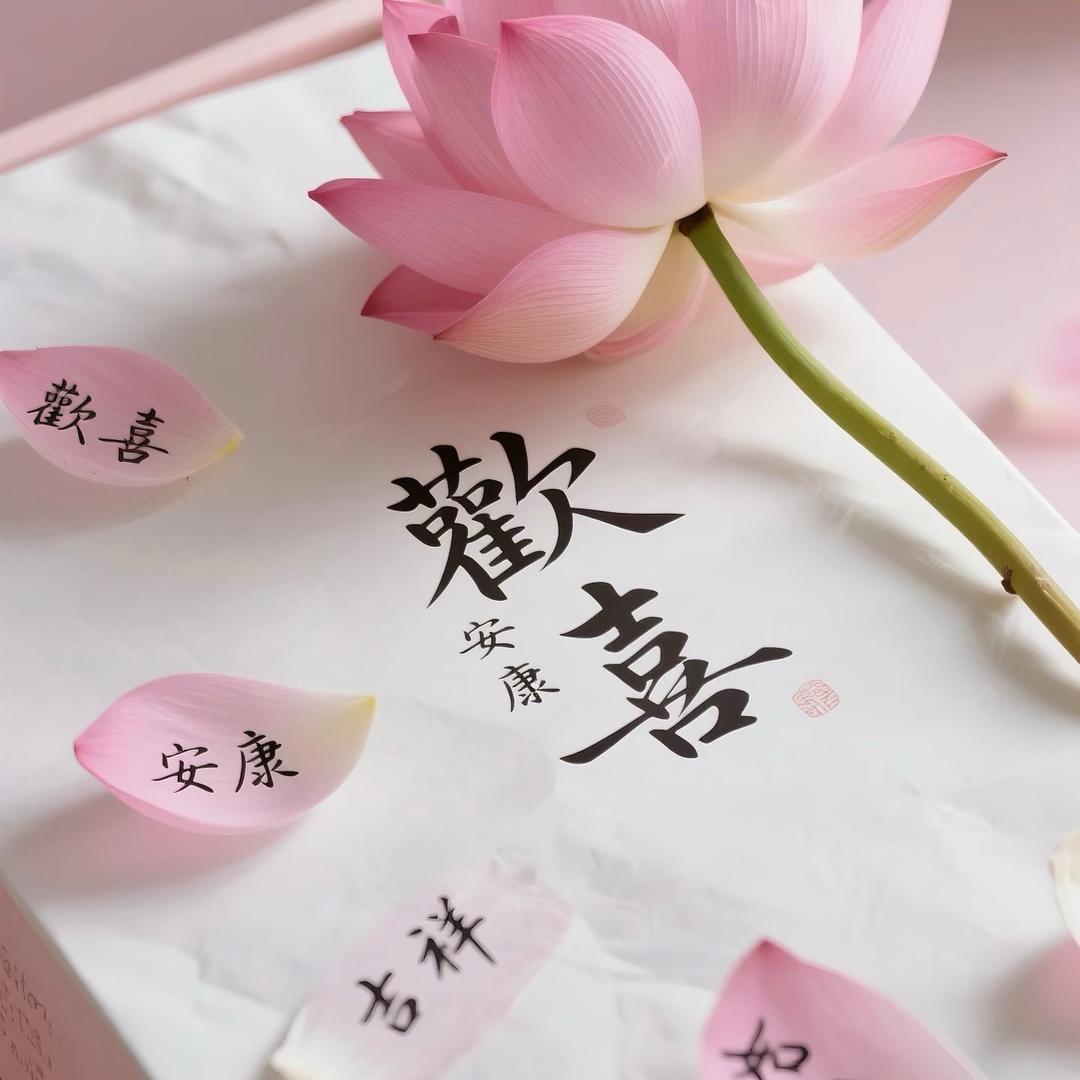 歡喜
歡喜
安康
安康
吉祥
如